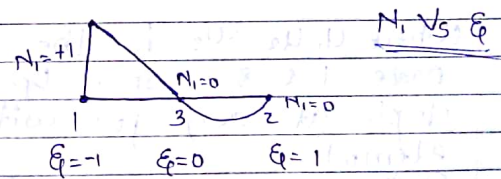 N₁ Vs ξ
N₁=+1
N₁=0
N₁=0
1 3 2
ξ=-1 ξ=0 ξ=1